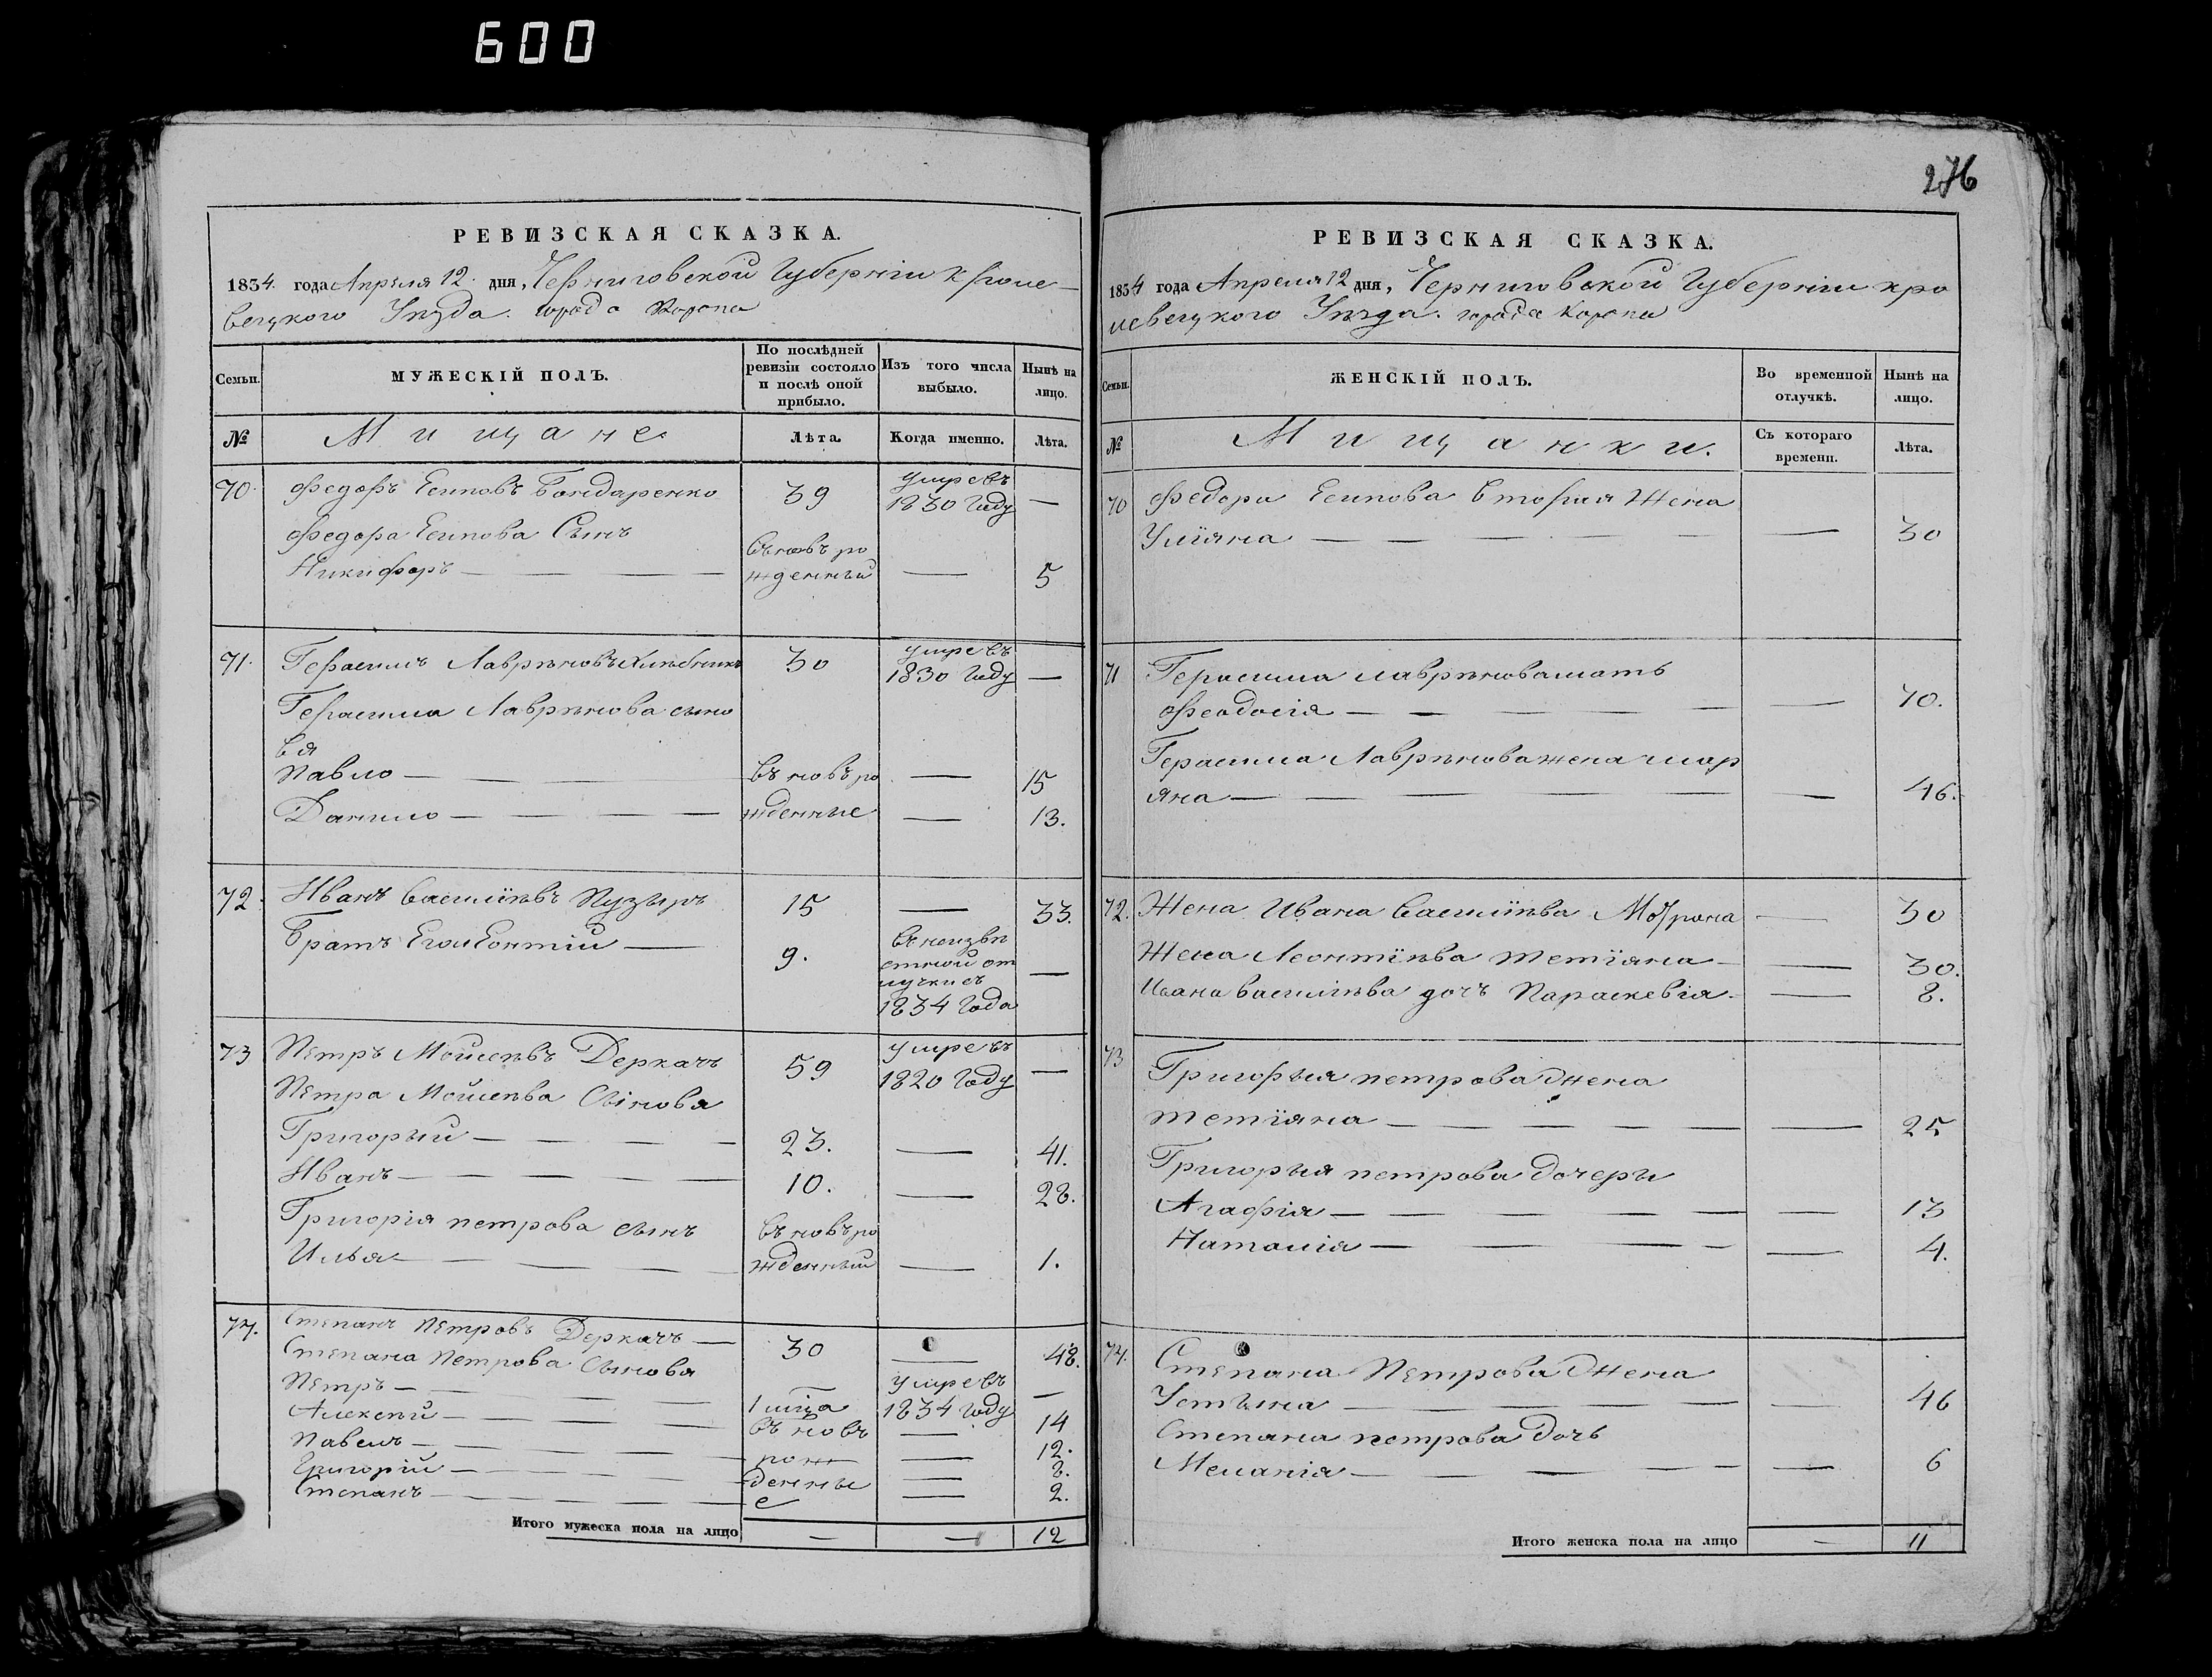 600
276
РЕВИЗСКАЯ СКАЗКА.
1834. года Апреля 12. дня, Черниговской Губернии Кроле-
вецкого Уѣзда. города Коропа
Семьи.
МУЖЕСКІЙ ПОЛЪ.
По послѣдней ревизіи состояло и послѣ оной прибыло.
Изъ того числа выбыло.
Нынѣ на лицо.
№
Мищане
Лѣта.
Когда именно.
Лѣта.
70. Федоръ Есиповъ Бондаренко 39 умре въ 1830 Году —
Федора Есипова Сынъ
Никифоръ — въ новъ рожденный — 5
71. Герасимъ Лаврѣновъ Хлѣбникъ 30 умре въ 1830 Году —
Герасима Лаврѣнова сыно
вя
Павло — въ новъ ро — 15
Данило — жденные — 13.
72. Иванъ Василіевъ Пузырь 15 — 33.
Братъ Его Леонтій — 9. въ неизвѣстной отлучки съ 1834 Года —
73 Петръ Мойсѣевъ Деркачъ 59 умре въ 1820 Году —
Петра Мойсѣева Сынова
Григорый — 23. — 41.
Иванъ — 10. — 28.
Григорія петрова сынъ въ новъ ро
Илья — жденный — 1.
74. Степанъ Петровъ Деркачъ — 30 — 48.
Степана Петрова Сынова
Петръ — 1 умре въ 1834 Году —
Алексѣй — въ новъ — 14
Павелъ — рож — 12.
Григорій — денны — 8.
Степанъ — е — 2.
Итого мужеска пола на лицо — — 12
РЕВИЗСКАЯ СКАЗКА.
1834 года Апреля 12 дня, Черниговской Губернии Кро
левецкого Уѣзда. города Коропа
Семьи.
ЖЕНСКІЙ ПОЛЪ.
Во временной отлучкѣ.
Нынѣ на лицо.
№
Мищанки.
Съ котораго времени.
Лѣта.
70 Федора Есипова вторая Жена
Уліяна — — 30
71 Герасима лаврѣнова мать
Феодосія — — 70.
Герасима Лаврѣнова жена мар
яна — — 46.
72. Жена Ивана Василіева Мотрона — 30
Жена Леонтіева тетіяна — — 30.
Ивана василіева дочъ Параскевія — 8.
73 Григорыя петрова Жена
тетіяна — — 25
Григорыя петрова Дочеры
Агафія — — 13
Наталія — — 4.
74. Степана Петрова Жена
Устына — — 46
Степана петрова Дочь
Меланія — — 6
Итого женска пола на лицо — 11